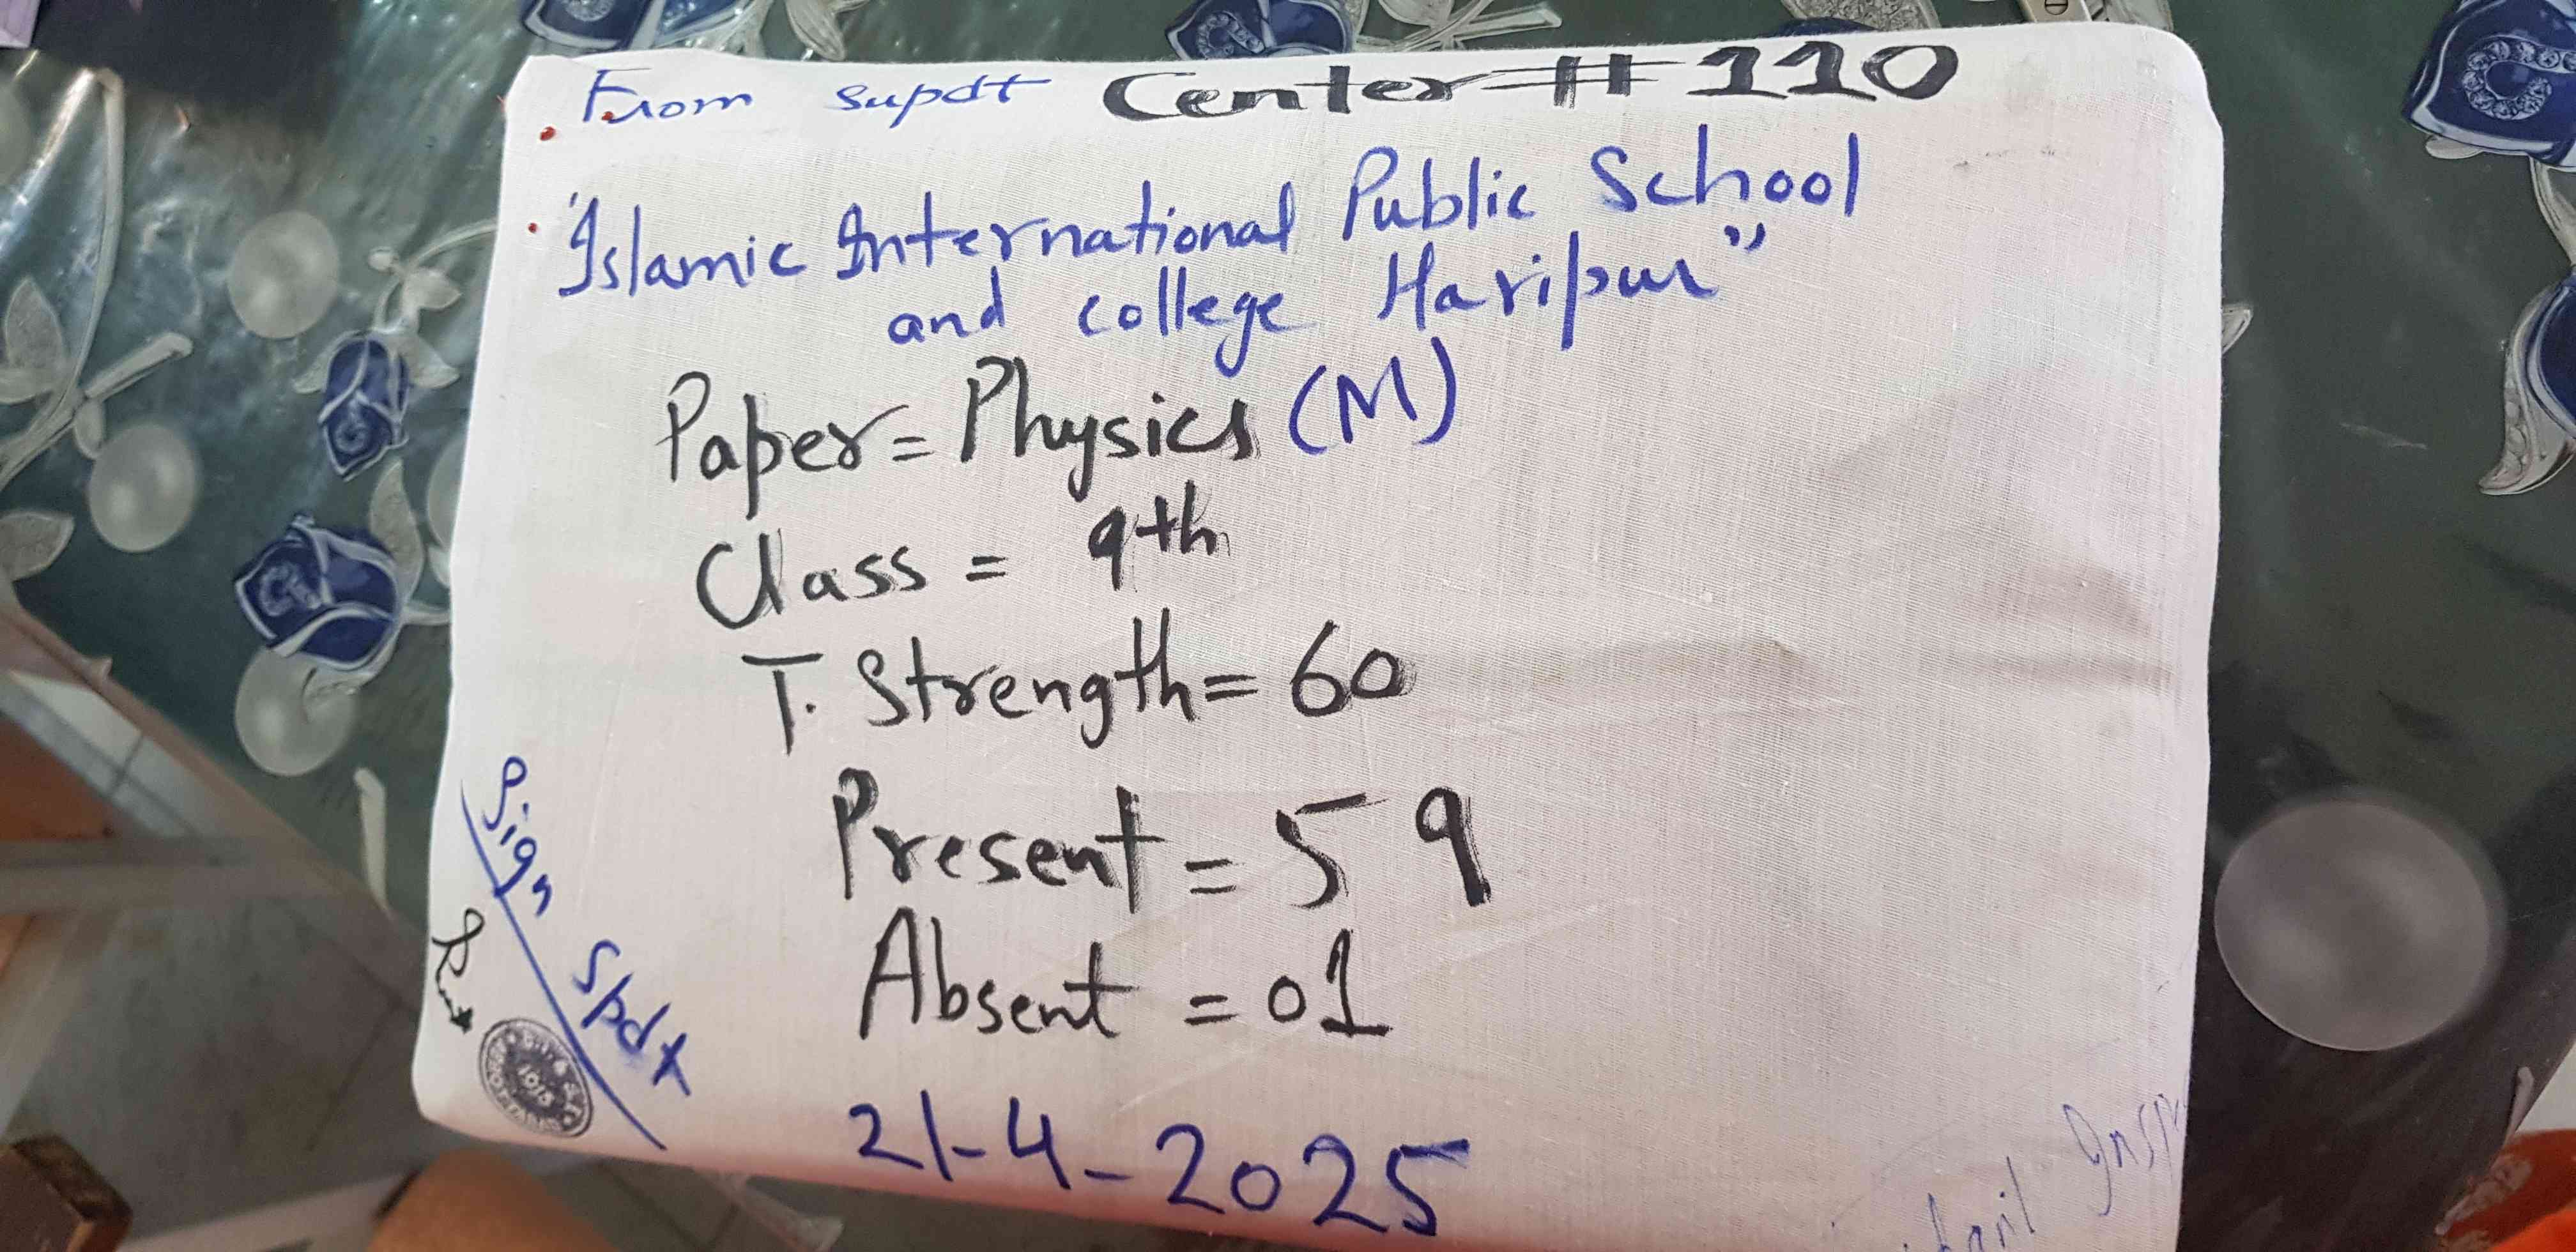 From supdt Center # 110
"Islamic International Public School
and college Haripur"
Paper = Physics (M)
Class = 9th
T. Strength = 60
Present = 59
Absent = 01
Sign Spdt
21-4-2025